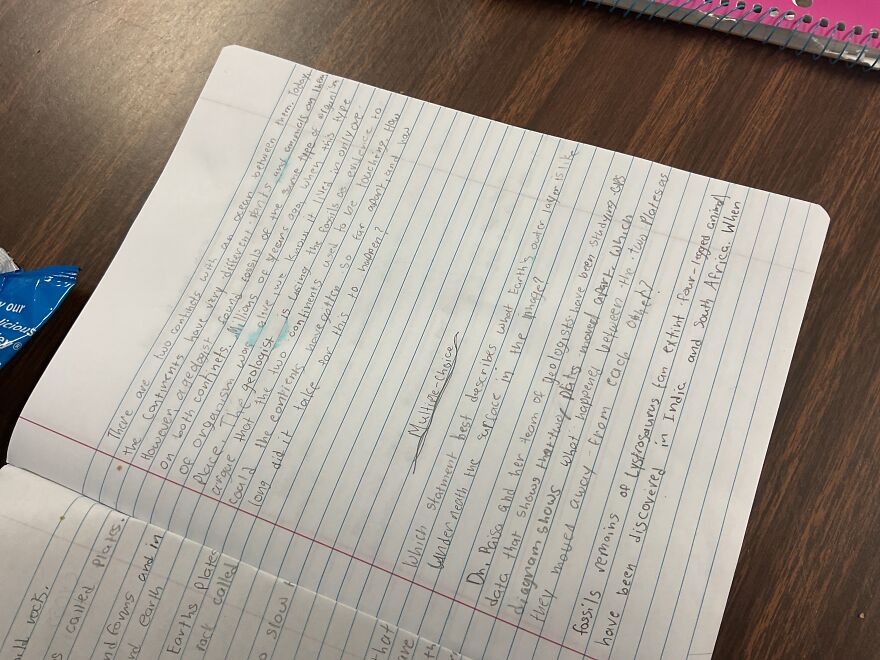 There are two continets with an ocean between them. Today,
the continents have very different plants and animals on them
However a geologist found fossils of the same type of organism
on both continets. Millions of years ago when this type
of organism was alive we know it lived in only one
place. The geologist is using the fossils as evidence to
argue that the two continents used to be touching. How
could the contients have gotten so far apart, and how
long did it take for this to happen?
Multiple-choice
Which statment best describes what Earth's outer layer is like
underneath the surface in the
Dr. Paisa and her team of geologists have been studying GPS
data that shows that two plats moved apart. Which
diagram shows what happened between the two plates as
they moved away from each other?
fossils remains of Lystrosaurus (an extint four-legged animal
have been discovered in India and South Africa. When
ld rock.
s called Plates.
nd forms and in
nd earth
Earths Plates
rock called
o slow
that
y our
licious